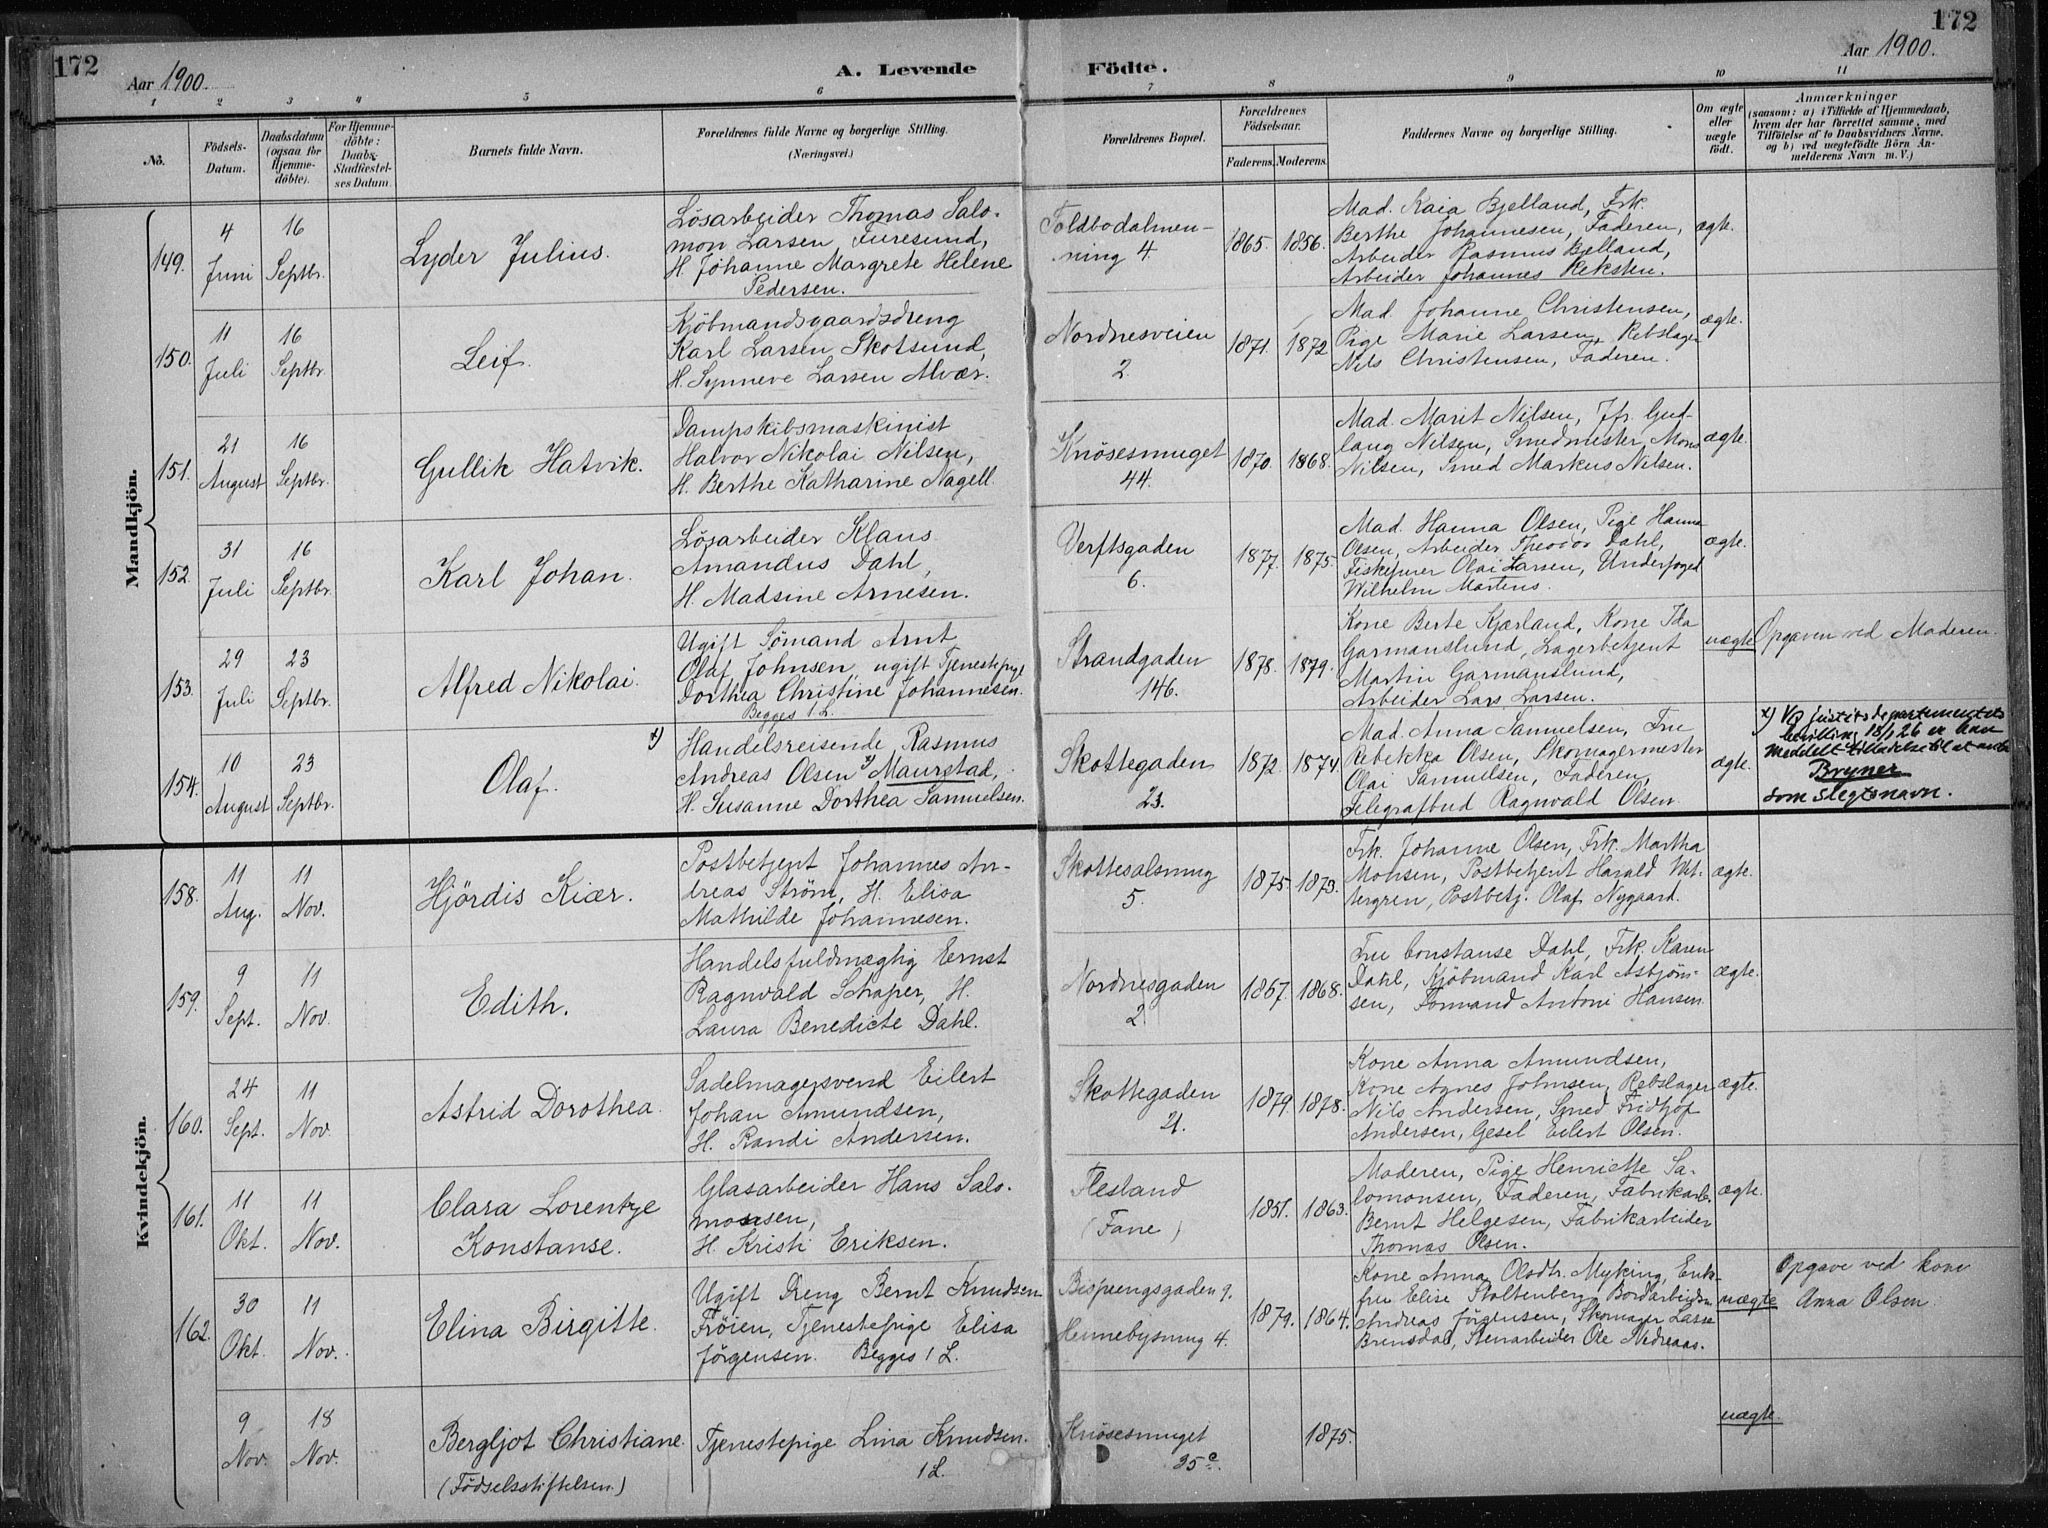 172
172
Aar 1900.
A. Levende
Födte.
Aar 1900.
1 2 3 4 5 6 7 8 9 10 11
No.
Födsels-
Datum.
Daabsdatum
(ogsaa for
Hjemme-
döbte).
For Hjemme-
döbte:
Daabs-
Stadfæstel-
ses Datum.
Barnets fulde Navn.
Forældrenes fulde Navne og borgerlige Stilling.
(Næringsvei.)
Forældrenes Bopæl.
Forældrenes
Födselsaar.
Faderens. Moderens.
Faddernes Navne og borgerlige Stilling.
Om ægte
eller
uægte
födt.
Anmærkninger
(saasom: a) i Tilfælde af Hjemmedaab,
hvem der har forrettet samme, med
Tilföielse af to Daabsvidners Navne,
og b) ved uægtefödte Börn An-
melderens Navn m. V.)
Mandkjön.
149.
4
Juni
16
Septbr.
Lyder Julius.
Lösarbeider Thomas Salo-
mon Larsen Furesund,
H. Johanne Margrete Helene
Pedersen.
Toldbodalmen-
ning 4.
1865. 1856.
Mad. Kaia Bjelland, Frk.
Berthe Johannesen, Faderen,
Arbeider Rasmus Bjelland,
Arbeider Johannes Reksten.
ægte.
150.
11
Juli
16
Septbr.
Leif.
Kjöbmandsgaardsdreng
Karl Larsen Skotsund,
H. Synneve Larsen Alvær.
Nordnesveien
2.
1871. 1872
Mad. Johanne Christensen,
Pige Marie Larsen, Rebslager
Nils Christensen, Faderen.
ægte.
151.
21
August
16
Septbr.
Gullik Hatvik.
Dampskibsmaskinist
Halvor Nikolai Nilsen,
H. Berthe Katharine Nagell.
Knösesmuget
44.
1870. 1868.
Mad. Marit Nilsen, Jfr. Gud-
laug Nilsen, Smedmester Mons
Nilsen, Smed Markus Nilsen.
ægte.
152.
31
Juli
16
Septbr.
Karl Johan.
Lösarbeider Klaus
Amandus Dahl,
H. Madsine Arnesen.
Verftsgaden
6.
1877. 1875.
Mad. Hanna Olsen, Pige Hanna
Olsen, Arbeider Theodor Dahl,
Olai Larsen, Underfoged
Wilhelm Martens.
ægte.
153.
29
Juli
23
Septbr.
Alfred Nikolai.
Ugift Sömand Arnt
Olaf Johnsen, ugift Tjenestepige
Dorthea Christine Johannesen.
Begges 1 L.
Strandgaden
146.
1878. 1879.
Kone Berte Kjærland, Kone Ida
Garmanslund, Lagerbetjent
Martin Garmanslund,
Arbeider Lars Larsen.
uægte
Opgaven ved Moderen.
154.
10
August
23
Septbr.
Olaf.
x)
Handelsreisende Rasmus
Andreas Olsen x) Maurstad,
H. Susanne Dorthea Samuelsen.
Skottegaden
23.
1872. 1874.
Mad. Anna Samuelsen, Fru
Rebekka Olsen, Skomagermester
Olai Samuelsen, Faderen,
Telegrafbud Ragnvald Olsen.
ægte.
x) Ved justitsdepartementets
bevilling 18/1 26 er han
meddelt tilladelse til at anta
Bryner
som slegtsnavn.
Kvindekjön.
158.
11
Aug.
11
Nov.
Hjördis Kiær.
Postbetjent Johannes An-
dreas Ström, H. Elisa
Mathilde Johannesen.
Skottesalsmug
5.
1875. 1873.
Frk. Johanne Olsen, Frk. Martha
Monsen, Postbetjent Harald Wet-
tergren, Postbetj. Olaf Nygaard.
ægte.
159.
9
Sept.
11
Nov.
Edith.
Handelsfuldmægtig Ernst
Ragnvald Schaper, H.
Laura Benedicte Dahl.
Nordnesgaden
2.
1867. 1868.
Fru Constanse Dahl, Frk. Karen
Dahl, Kjöbmand Karl Asbjörn-
sen, Formand Antoni Hansen.
ægte.
160.
24
Sept.
11
Nov.
Astrid Dorothea.
Sadelmagersvend Eilert
Johan Amundsen,
H. Randi Andersen.
Skottegaden
21.
1879. 1878.
Kone Anna Amundsen,
Kone Agnes Johnsen, Rebslager
Nils Andersen, Smed Fridtjof
Andersen, Gesel Eilert Olsen.
ægte.
161.
11
Okt.
11
Nov.
Clara Lorentze
Konstanse.
Glasarbeider Hans Salo-
monsen,
H. Kristi Eriksen.
Flesland
(Fane)
1851. 1863.
Moderen, Pige Henriette Sa-
lomonsen, Faderen, Fabrikarb.
Bernt Helgesen, Fabrikarbeider
Thomas Olsen.
ægte.
162.
30
Okt.
11
Nov.
Elina Birgitte.
Ugift Dreng Bernt Knudsen
Fröien, Tjenestepige Elisa
Jörgensen. Begges 1 L.
Bispeengsgaden 9.
Hennebysmug 4.
1879. 1864.
Kone Anna Olsdtr. Myking, Enke-
fru Elise Stoltenberg, Bordarbeider
Andreas Jörgensen, Skomager Lasse
Brensdal, Stenarbeider Ole Nedreaas.
uægte
Opgave ved kone
Anna Olsen.
9
Nov.
18
Nov.
Bergljot Christiane.
(Födselsstiftelsen.)
Tjenestepige Lina Knudsen.
1 L.
Knösesmuget
35 c.
1875.
uægte.